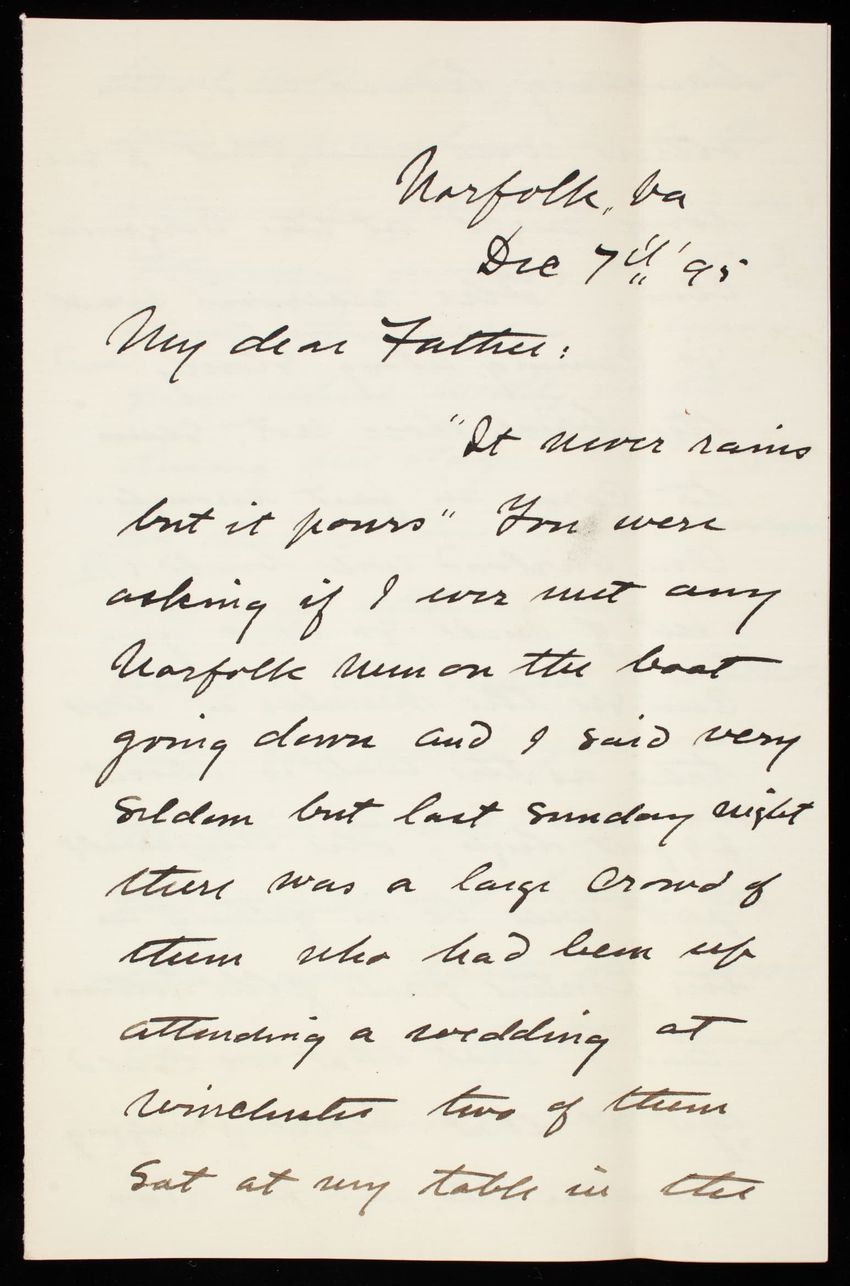 Norfolk, Va
Dec 7th '95
My dear Father:
"It never rains
but it pours" You were
asking if I ever met any
Norfolk men on the boat
going down and I said very
seldom but last Sunday night
there was a large crowd of
them who had been up
attending a wedding at
Winchester two of them
sat at my table in the